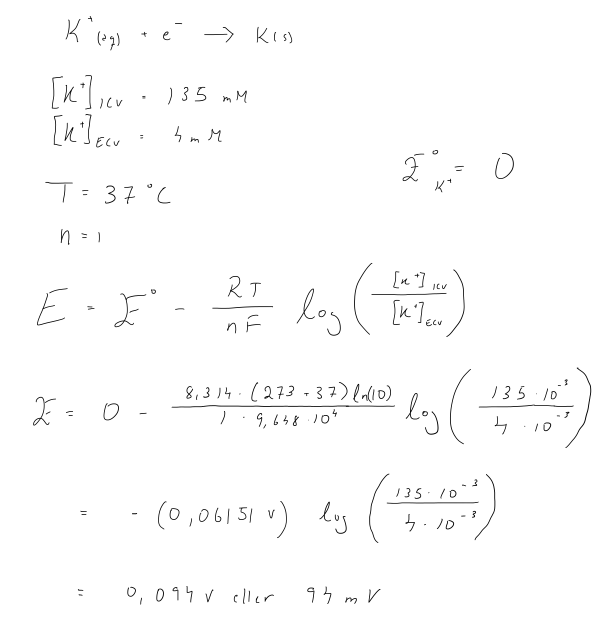 K⁺(aq) + e⁻ → K(s)
[K⁺]ICV = 135 mM
[K⁺]ECV = 4 mM
E°K⁺ = 0
T = 37 °C
n = 1
E = E° - RT/nF log([K⁺]ICV/[K⁺]ECV)
E = 0 - 8,314·(273+37)ln(10)/1·9,648·10⁴ log(135·10⁻³/4·10⁻³)
= -(0,06151 V) log(135·10⁻³/4·10⁻³)
= 0,094 V eller 94 mV